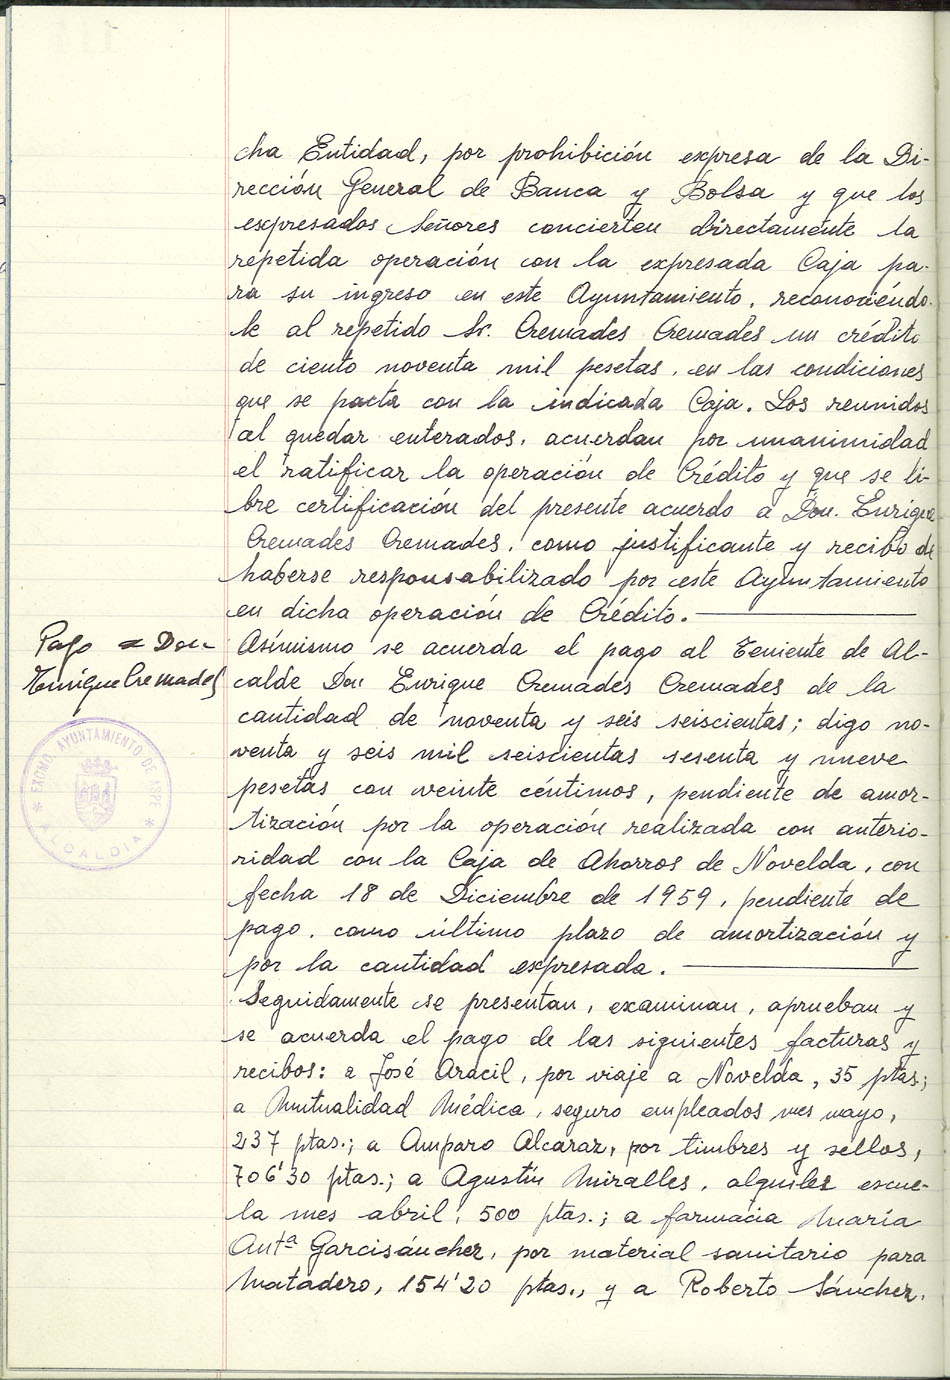 cha Entidad, por prohibición expresa de la Di-
rección General de Banca y Bolsa y que los
expresados Señores concierten directamente la
repetida operación con la expresada Caja pa-
ra su ingreso en este Ayuntamiento, reconociéndo-
le al repetido Sr. Cremades Cremades un crédito
de ciento noventa mil pesetas, en las condiciones
que se pacta con la indicada Caja. Los reunidos
al quedar enterados, acuerdan por unanimidad
el ratificar la operación de Crédito y que se li-
bre certificación del presente acuerdo a Don. Enrique
Cremades Cremades, como justificante y recibo de
haberse responsabilizado por este Ayuntamiento
en dicha operación de Crédito.
Pago a Don
Enrique Cremades
Asimismo se acuerda el pago al Teniente de Al-
calde Don Enrique Cremades Cremades de la
cantidad de noventa y seis seiscientas; digo no-
venta y seis mil seiscientas sesenta y nueve
pesetas con veinte céntimos, pendiente de amor-
tización por la operación realizada con anterio-
ridad con la Caja de Ahorros de Novelda, con
fecha 18 de Diciembre de 1959, pendiente de
pago, como último plazo de amortización y
por la cantidad expresada.
EXCMO. AYUNTAMIENTO DE ASPE
* ALCALDIA *
Seguidamente se presentan, examinan, aprueban y
se acuerda el pago de las siguientes facturas y
recibos: a José Aracil, por viaje a Novelda, 35 ptas;
a Mutualidad Médica, seguro empleados mes mayo,
237 ptas.; a Amparo Alcaraz, por timbres y sellos,
706'30 ptas.; a Agustín Miralles, alquiler escue-
la mes abril, 500 ptas.; a farmacia María
Antª Garcisánchez, por material sanitario para
Matadero, 154'20 ptas., y a Roberto Sánchez,